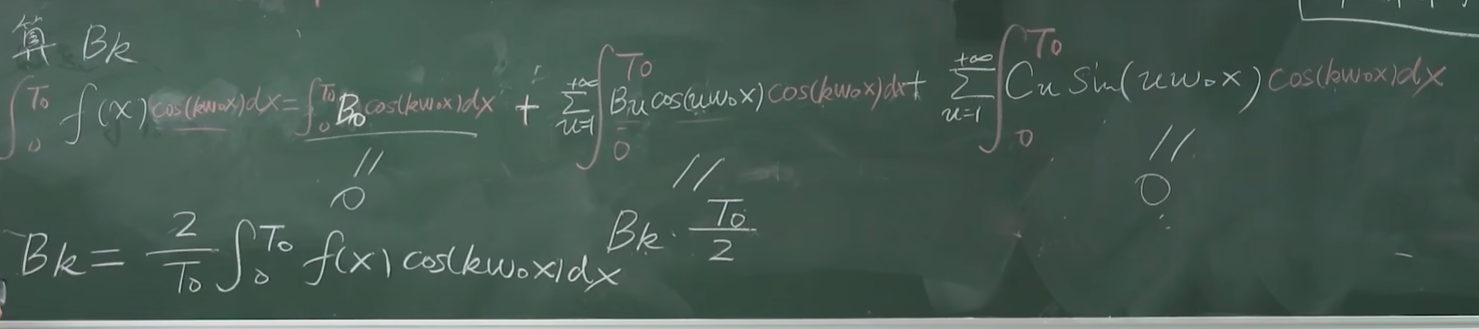 算 Bk
∫₀^{T₀} f(x) cos(kω₀x)dx = ∫₀^{T₀} B₀ cos(kω₀x)dx + ∑_{n=1}^{+∞} ∫₀^{T₀} Bn cos(nω₀x) cos(kω₀x)dx + ∑_{n=1}^{+∞} ∫₀^{T₀} Cn Sin(nω₀x) cos(kω₀x)dx
// // //
0 Bk · T₀/2 0
Bk = 2/T₀ ∫₀^{T₀} f(x) cos(kω₀x)dx